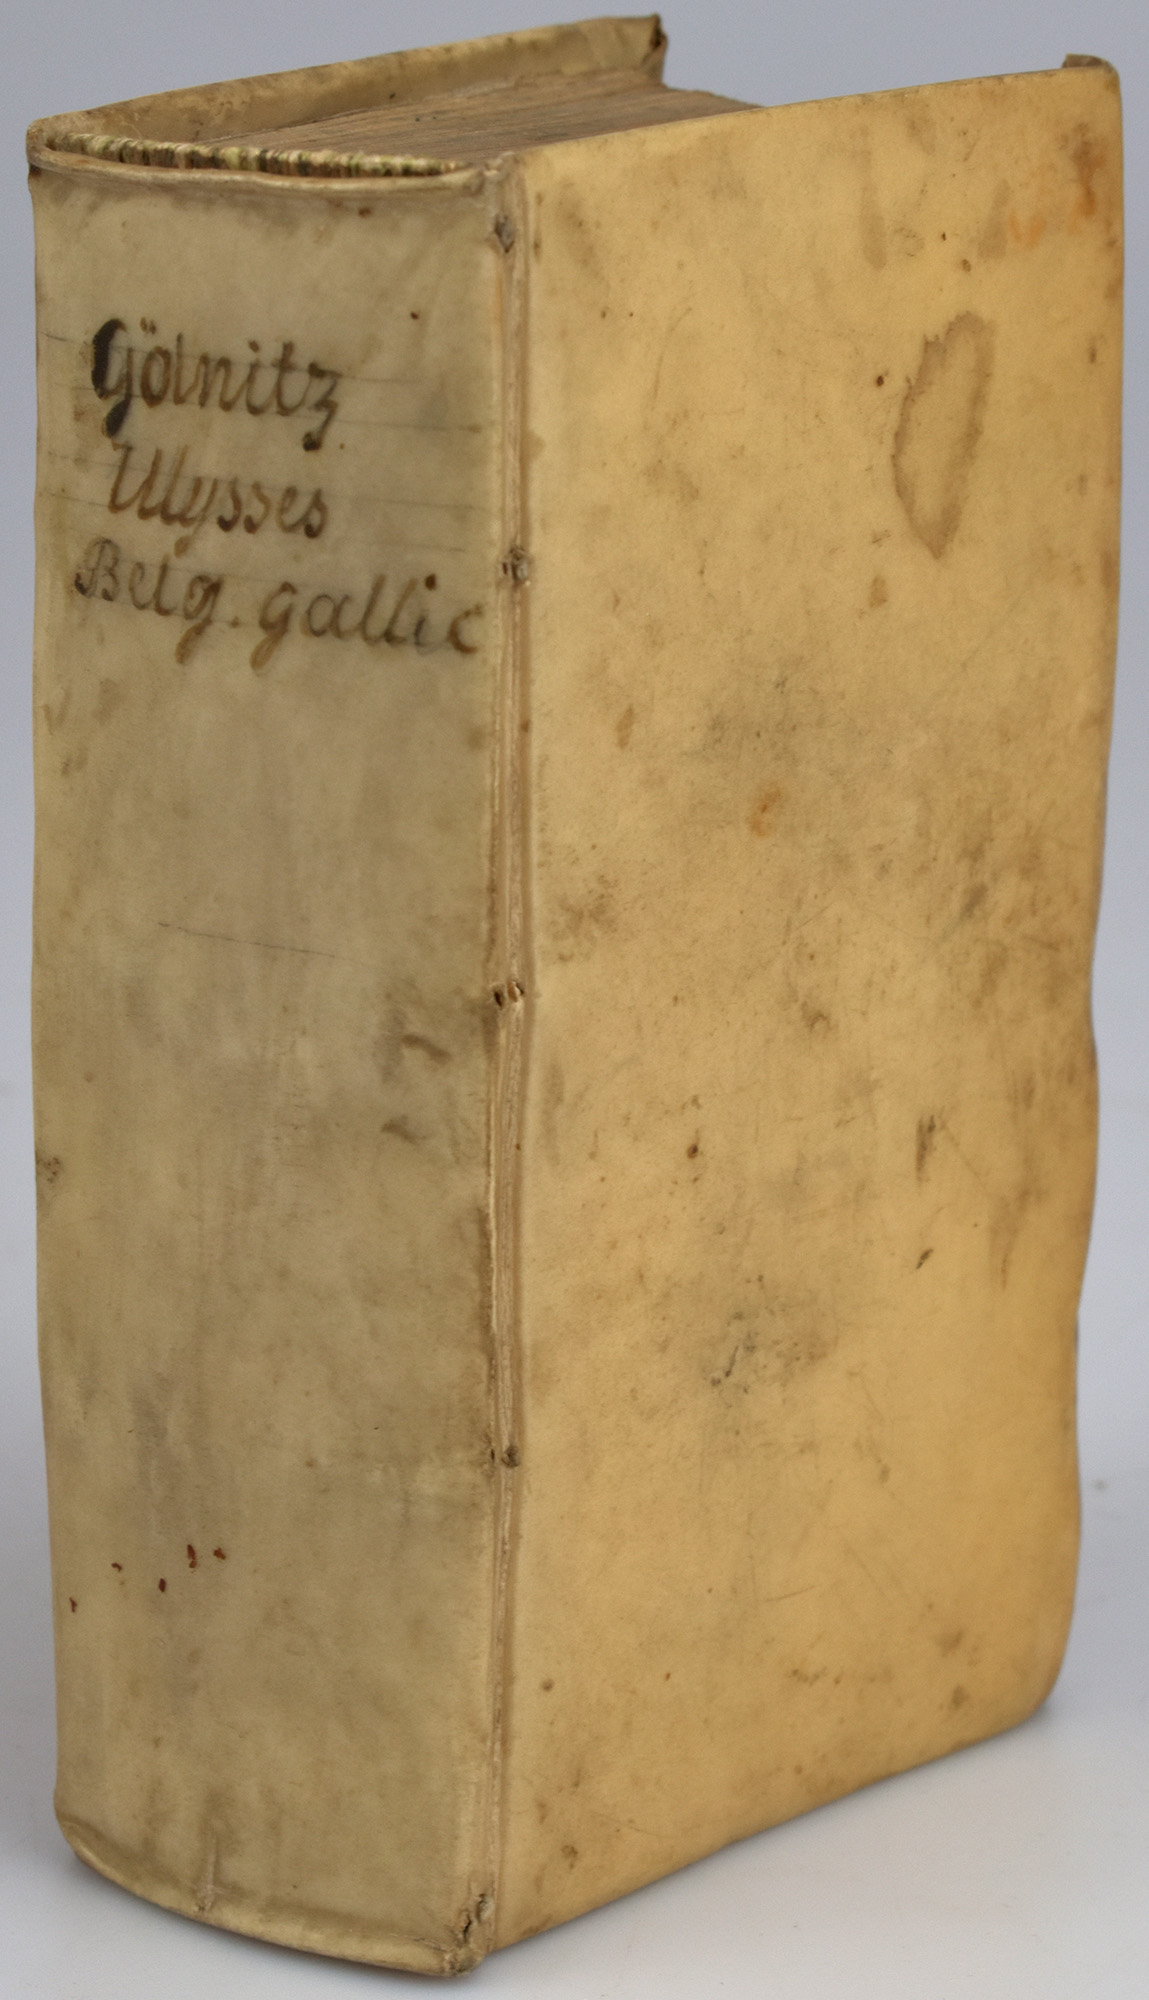 Gölnitz
Ulysses
Belg. gallic